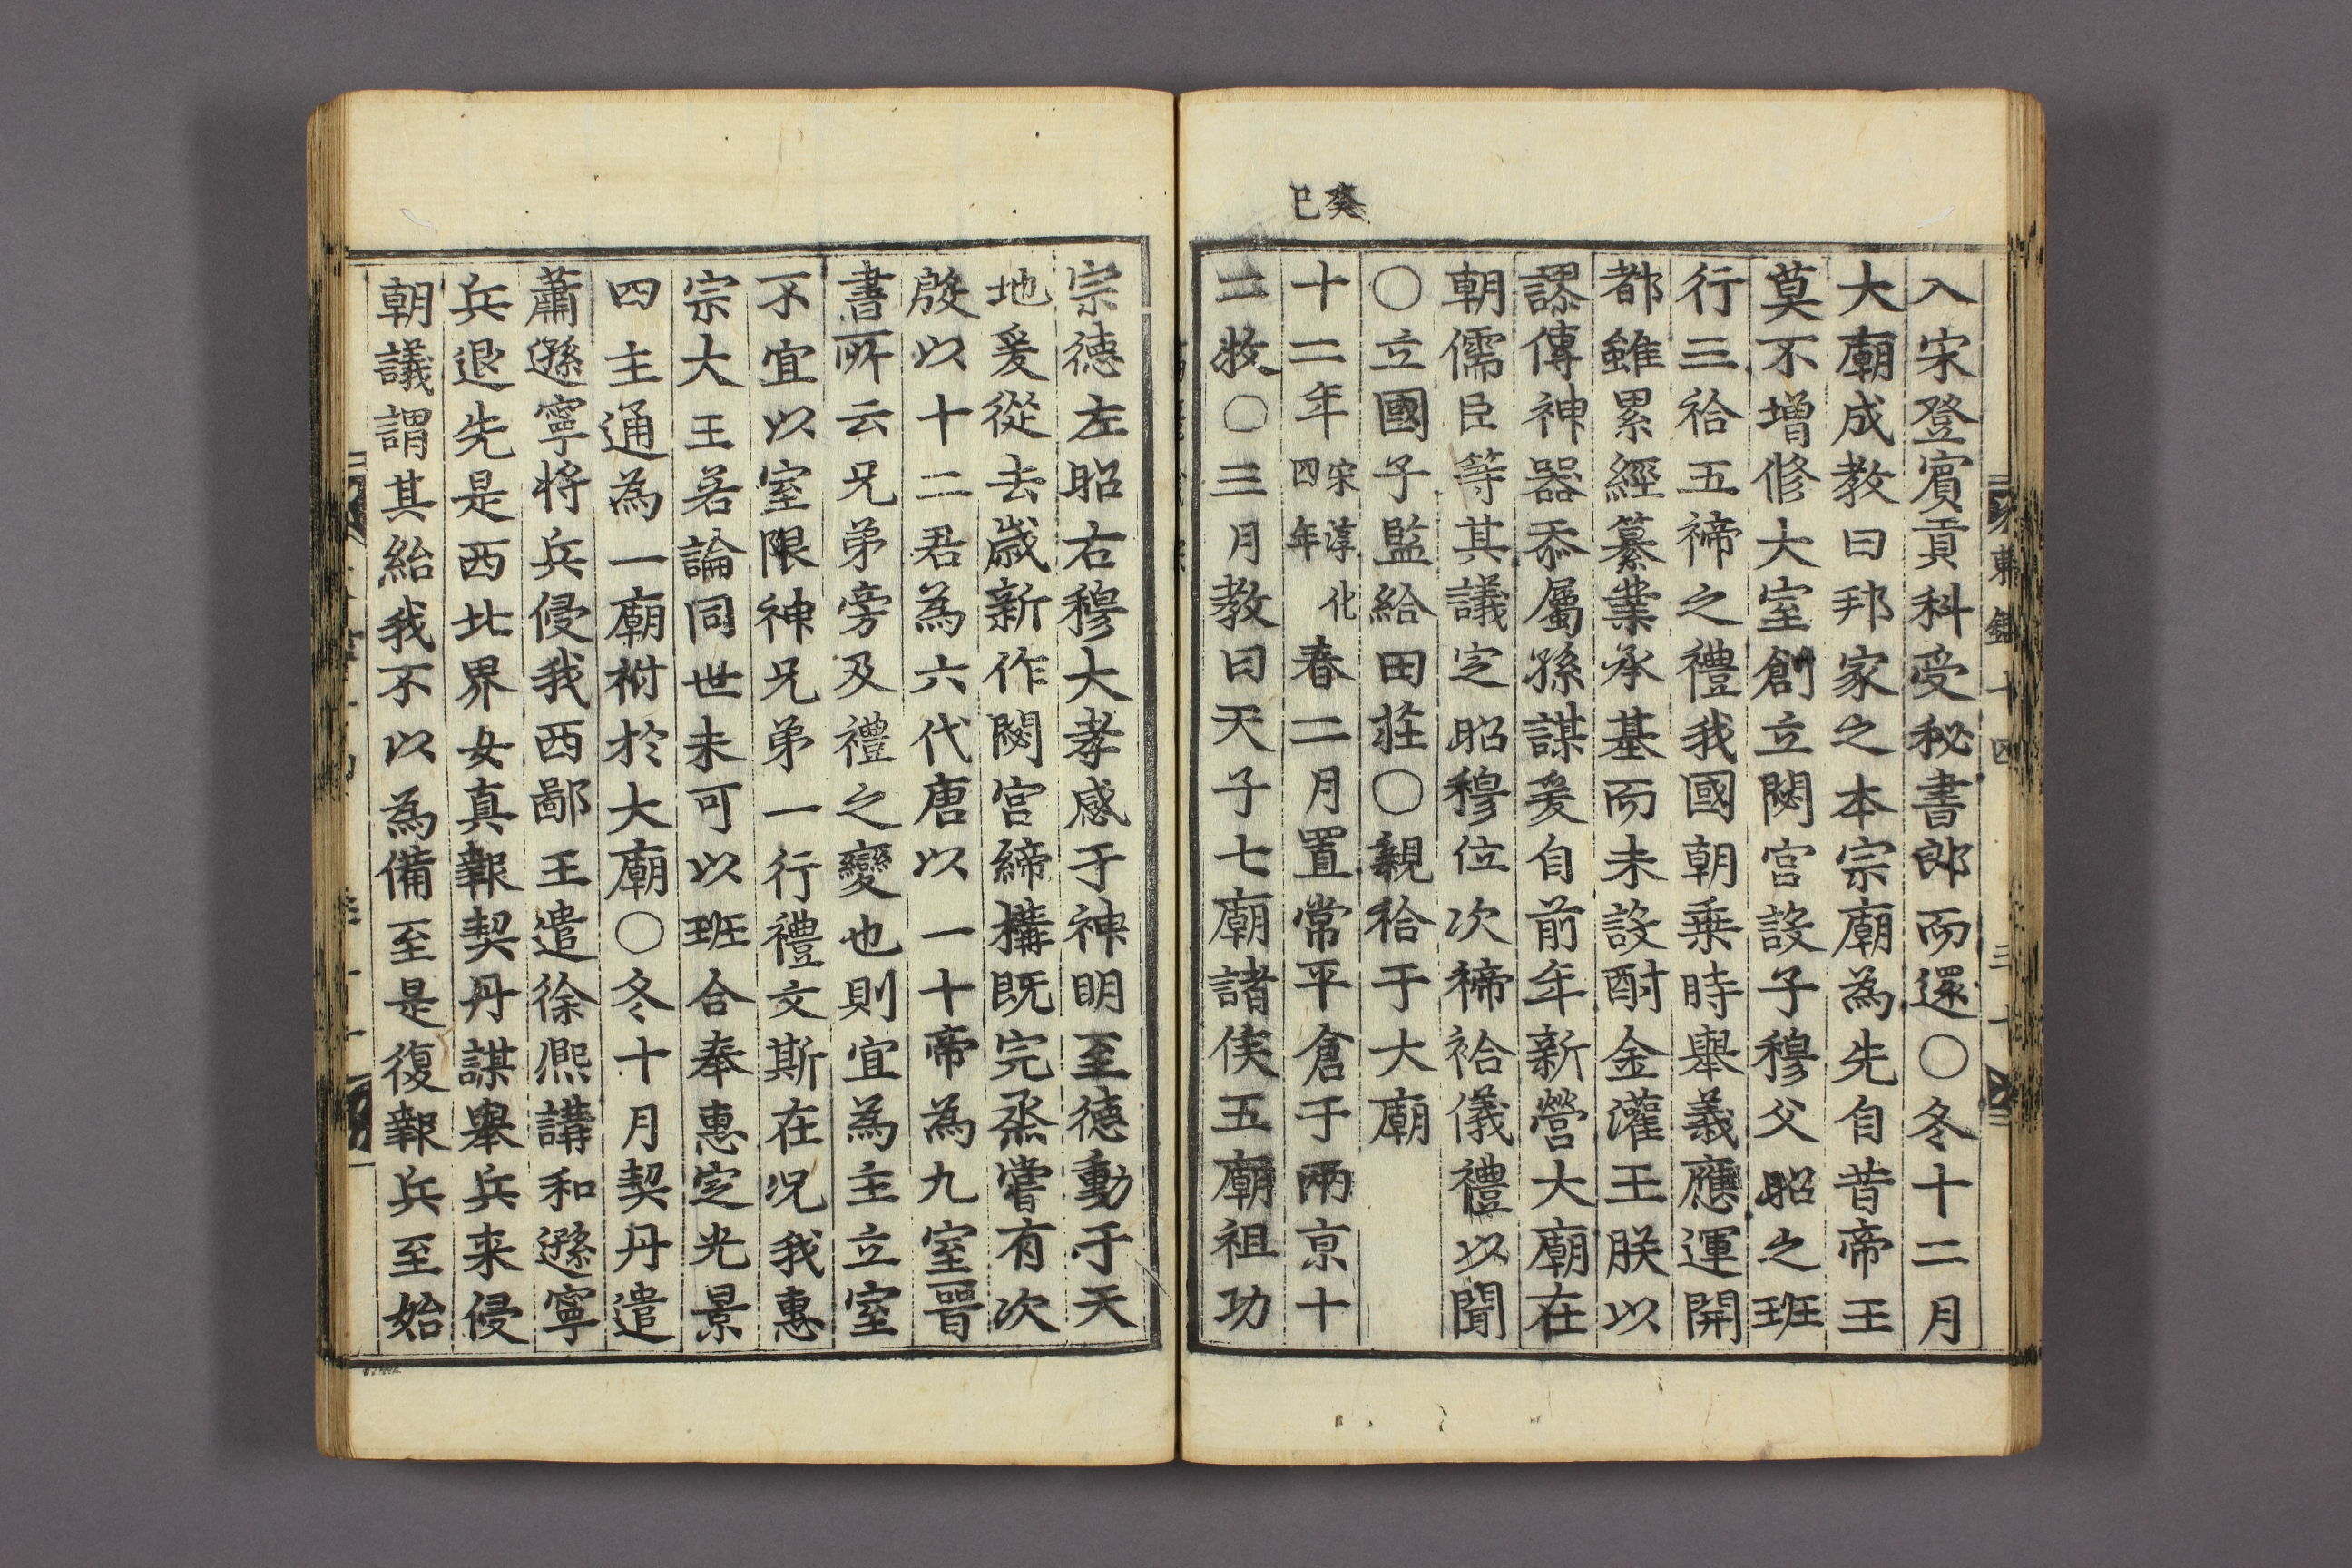 癸巳
入宋登賓貢科受秘書郎而還○冬十二月
大廟成教曰邦家之本宗廟為先自昔帝王
莫不增修大室創立閟宫設子穆父昭之班
行三祫五禘之禮我國朝乗時舉義應運開
都雖累經纂業承基而未設酎金灌王朕以
謬傳神器忝屬孫謀爰自前年新營大廟在
朝儒臣等其議定昭穆位次禘祫儀禮以聞
○立國子監給田莊○親祫于大廟
十二年宋淳化四年春二月置常平倉于兩京十
二牧○三月教曰天子七廟諸侯五廟祖功
宗德左昭右穆大孝感于神明至德動于天
地爰從去歲新作閟宫締構既完烝嘗有次
殷以十二君為六代唐以一十帝為九室晉
書所云兄弟旁及禮之變也則宜為主立室
不宜以室限神兄弟一行禮文斯在况我惠
宗大王若論同世未可以班合奉惠定光景
四主通為一廟祔於大廟○冬十月契丹遣
蕭遜寧將兵侵我西鄙王遣徐熙講和遜寧
兵退先是西北界女真報契丹謀舉兵来侵
朝議謂其紿我不以為備至是復報兵至始